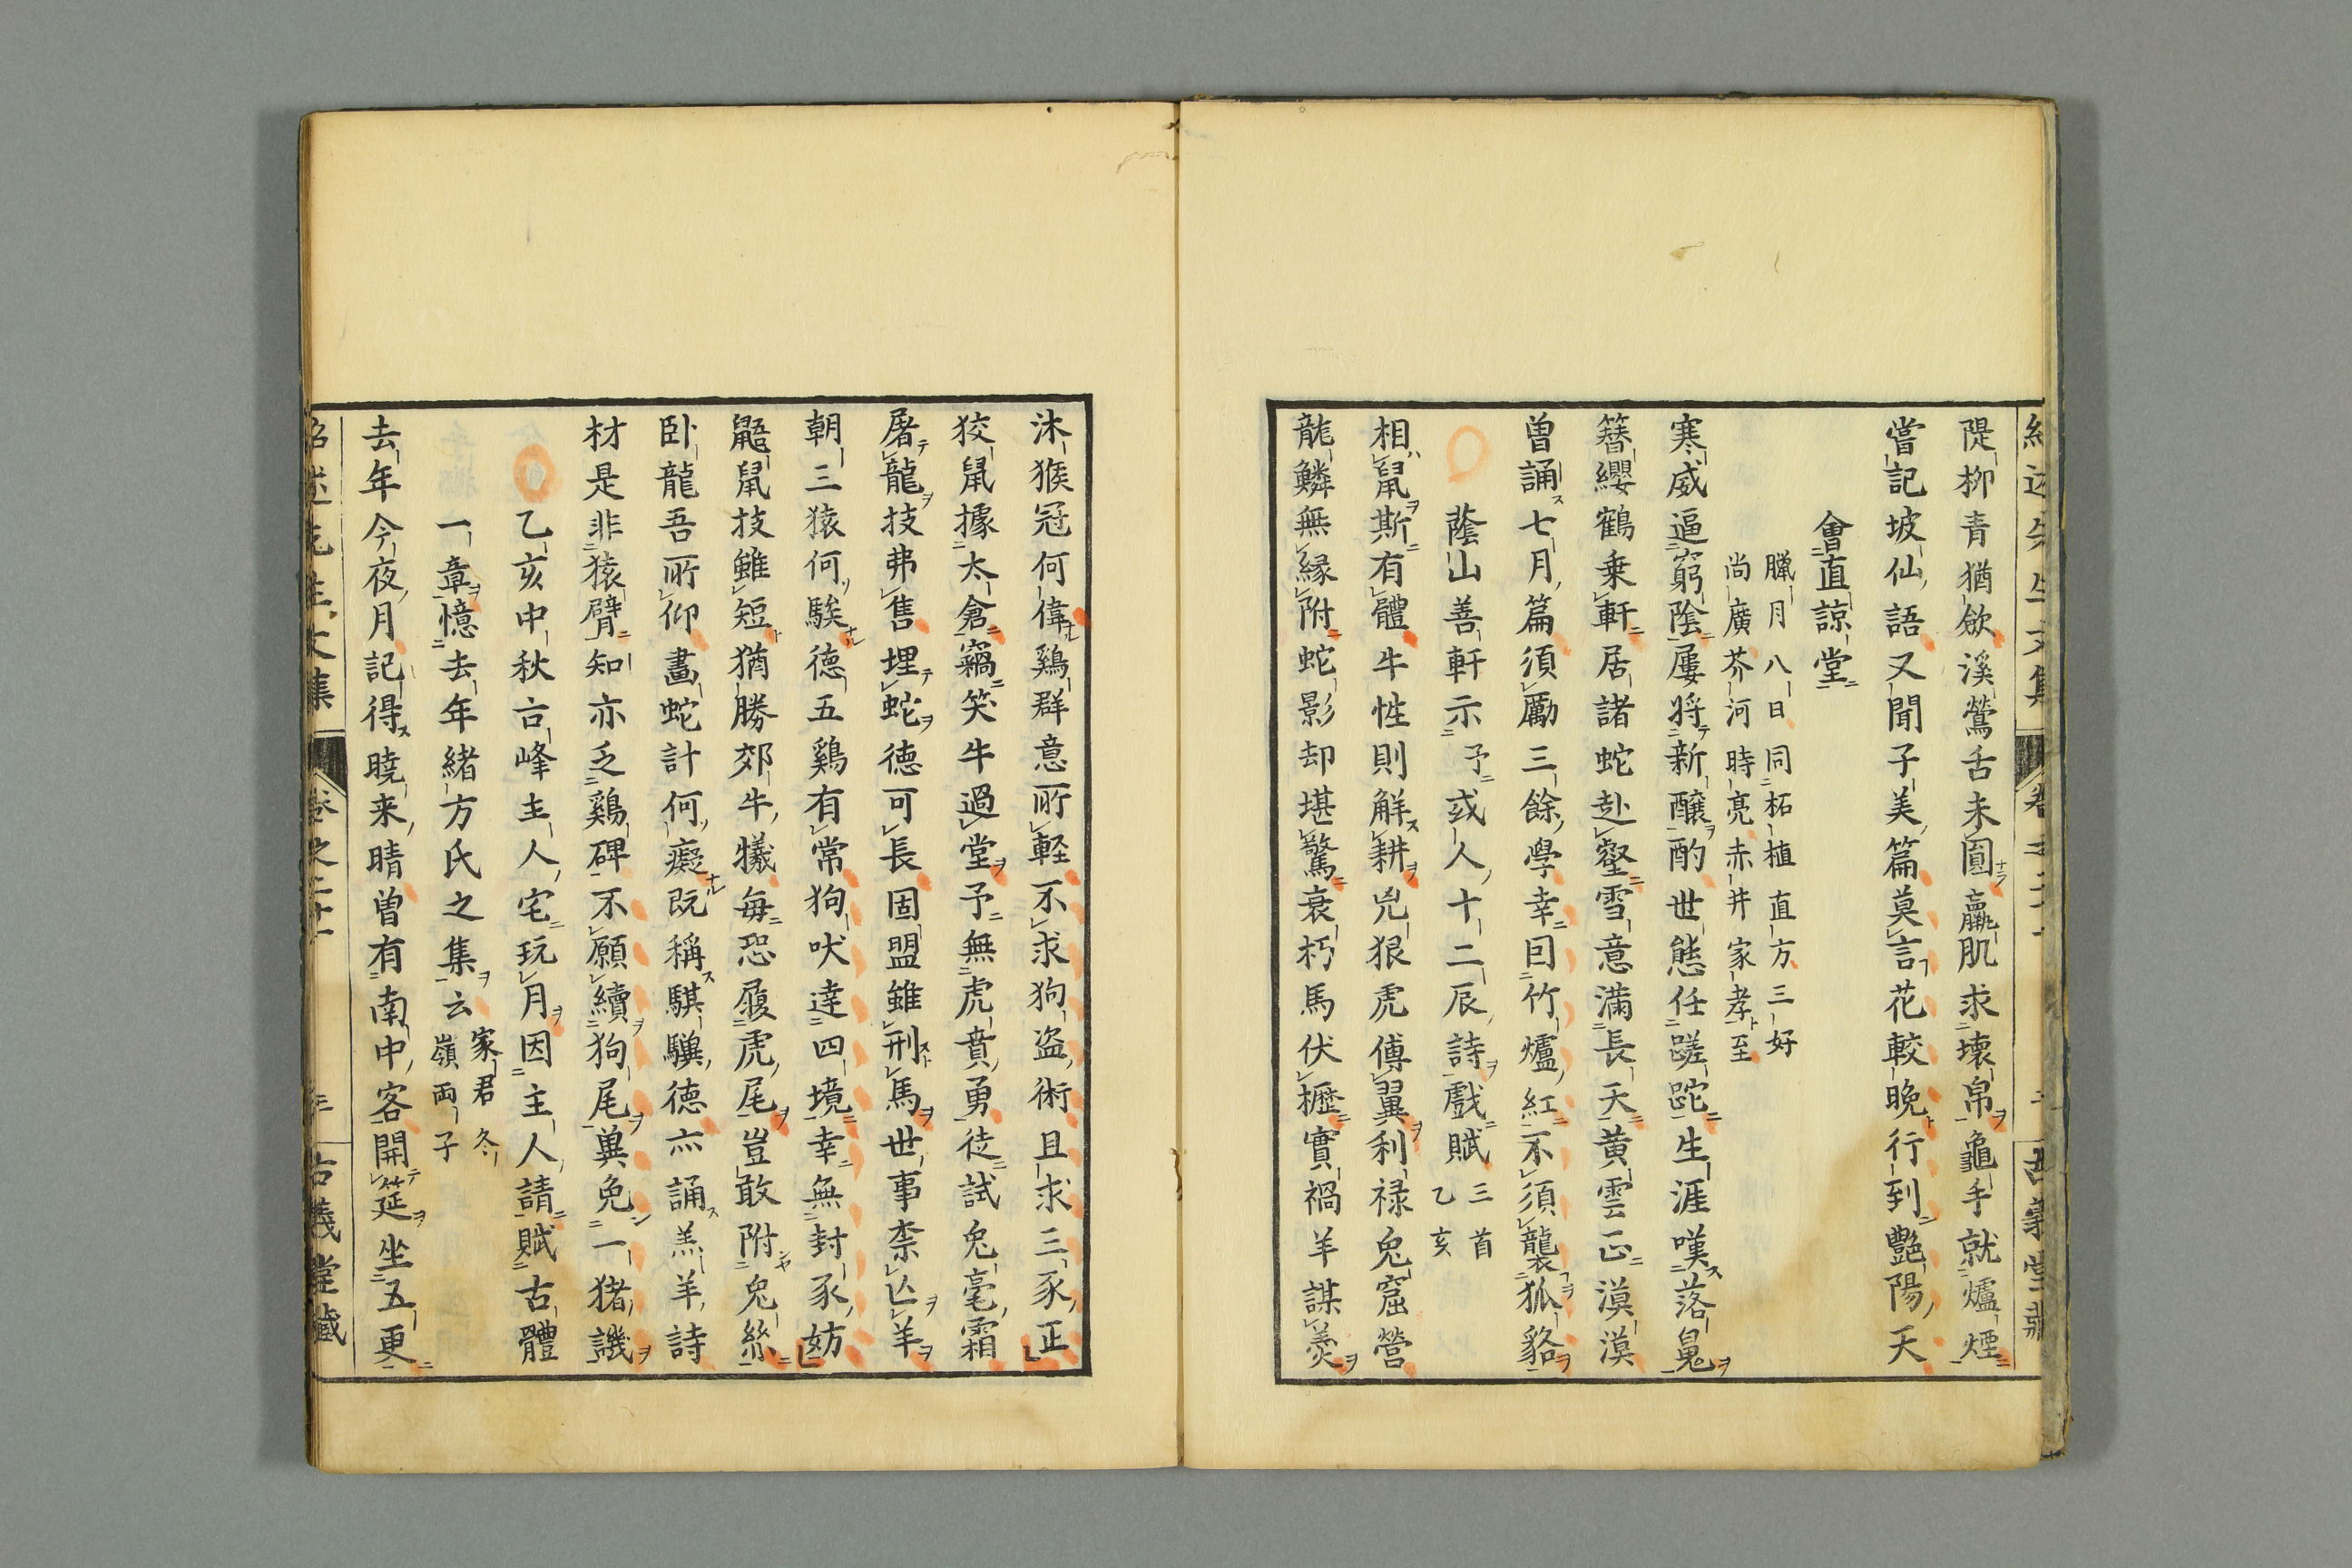 隄柳青猶飲溪鶯舌未圎羸肌求壊帛龜手就爐煙
嘗記坡仙語又聞子美篇莫言花較晚行到艷陽天
臘月八日同柘植直方三好
尚廣芥河時亮赤井家孝至
會直諒堂
寒威逼窮陰屢将新醸酌世態任蹉跎生涯嘆落鳬
簪纓鶴乗軒居諸蛇赴壑雪意満長天黄雲正漠漠
曽誦七月篇須勵三餘學幸囙竹爐紅不須襲狐貉
蔭山善軒示予或人十二辰詩戯賦三首
乙亥
相鼠斯有體牛性則解耕兇狠虎傅翼利禄兔窟營
龍鱗無縁附蛇影却堪驚衰朽馬伏櫪實禍羊謀羮
沐猴冠何偉鷄群意所軽不求狗盗術且求三豕正
狡鼠據太倉竊笑牛過堂予無虎賁勇徒試兔毫霜
屠龍技弗售埋蛇徳可長固盟雖刑馬世事柰亾羊
朝三猿何騃徳五鷄有常狗吠達四境幸無封豕妨
鼯鼠技雖短猶勝郊牛犠毎恐履虎尾豈敢附兔絲
卧龍吾所仰畫蛇計何癡既稱騏驥徳亦誦羔羊詩
材是非猿臂知亦乏鷄碑不願續狗尾冀免一猪譏
乙亥中秋古峰主人宅玩月因主人請賦古體
一章憶去年緒方氏之集云家君冬
嶺両子
去年今夜月記得暁来晴曽有南中客開筵坐五更
古義堂藏